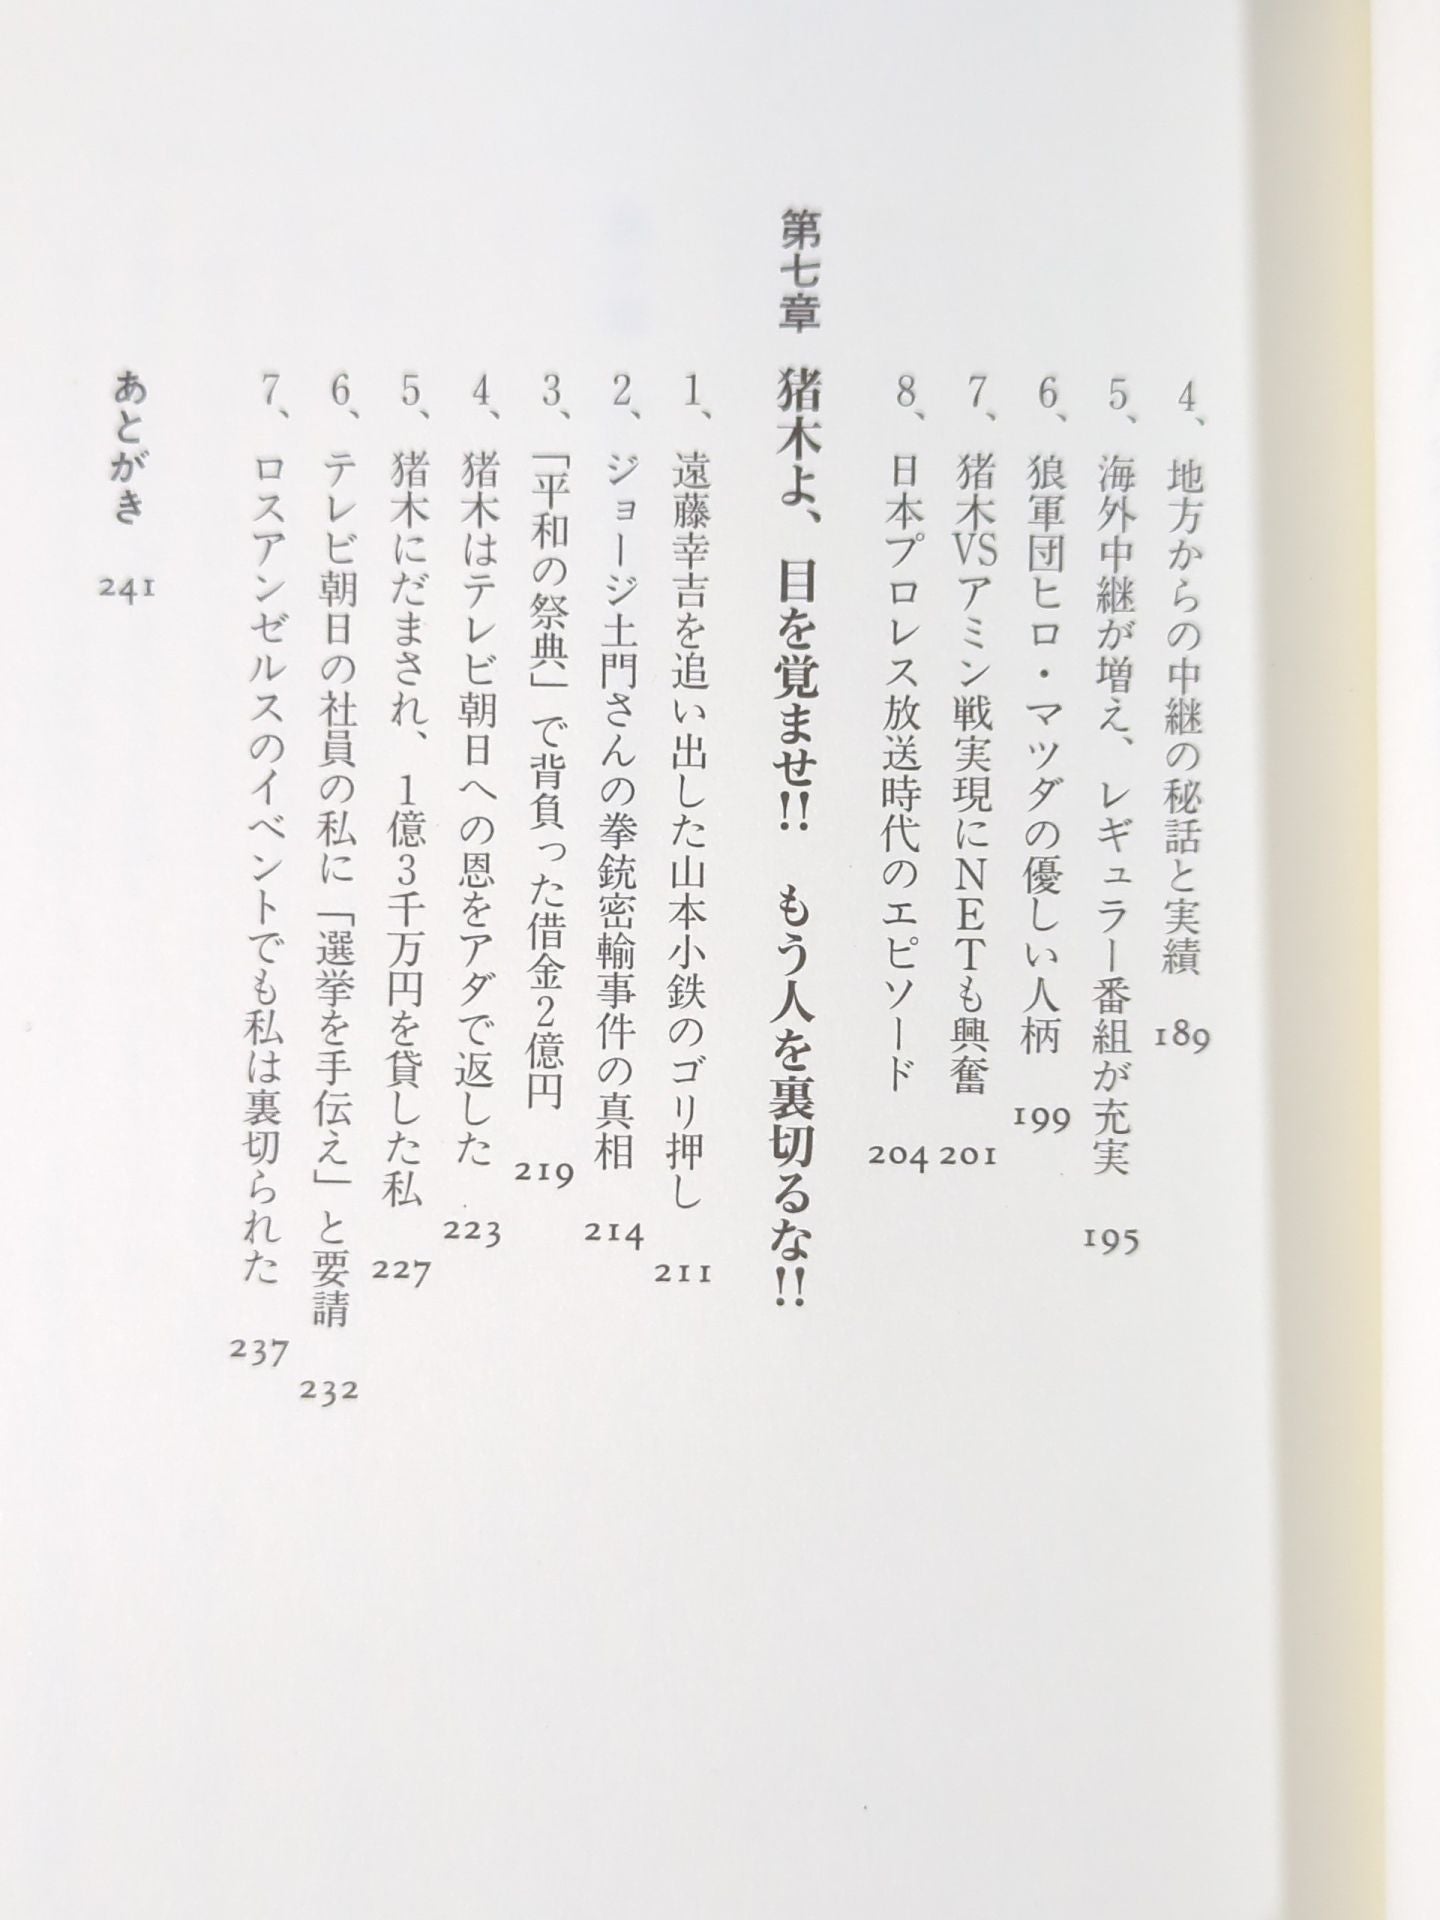 4、地方からの中継の秘話と実績 189
5、海外中継が増え、レギュラー番組が充実 195
6、狼軍団ヒロ・マツダの優しい人柄 199
7、猪木VSアミン戦実現にNETも興奮 201
8、日本プロレス放送時代のエピソード 204
第七章 猪木よ、目を覚ませ!! もう人を裏切るな!!
1、遠藤幸吉を追い出した山本小鉄のゴリ押し 211
2、ジョージ土門さんの拳銃密輸事件の真相 214
3、「平和の祭典」で背負った借金2億円 219
4、猪木はテレビ朝日への恩をアダで返した 223
5、猪木にだまされ、1億3千万円を貸した私 227
6、テレビ朝日の社員の私に「選挙を手伝え」と要請 232
7、ロスアンゼルスのイベントでも私は裏切られた 237
あとがき 241